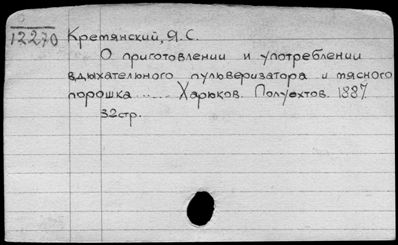 12270 Кремянский, Я.С.
О приготовлении и употреблении
вдыхательного пульверизатора и мясного
порошка ..... Харьков. Полуехтов. 1887.
32стр.